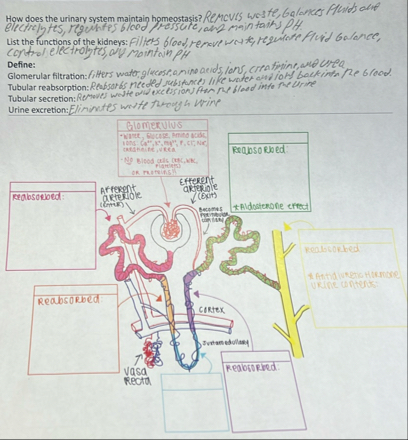 How does the urinary system maintain homeostasis? Removes waste, balances fluids and
electrolytes, regulates blood pressure, and maintains PH.
List the functions of the kidneys: Filters blood, remove waste, regulate fluid balance,
control electrolytes, and maintain pH
Define:
Glomerular filtration: Filters water, glucose, amino acids, ions, creatinine, and urea
Tubular reabsorption: Reabsorbs needed substances like water and ions back into the blood.
Tubular secretion: Removes waste and excess ions from the blood into the urine
Urine excretion: Eliminates waste through urine
Glomerulus
Water, Glucose, Amino acids,
ions:
creatinine, urea
Blood cells
or proteins!!
Reabsorbed:
*Aldosterone effect
Reabsorbed:
Afferent
arteriole
(enter)
Efferent
arteriole
(Exit)
Becomes
peritubular
capillary
Reabsorbed:
*Antidiuretic Hormone
urine
Reabsorbed:
Cortex
Juxtamedullary
Vasa
Recta
Reabsorbed: